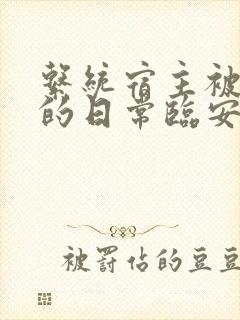 繫統宿主被
的日常臨安
被罰佔的豆豆